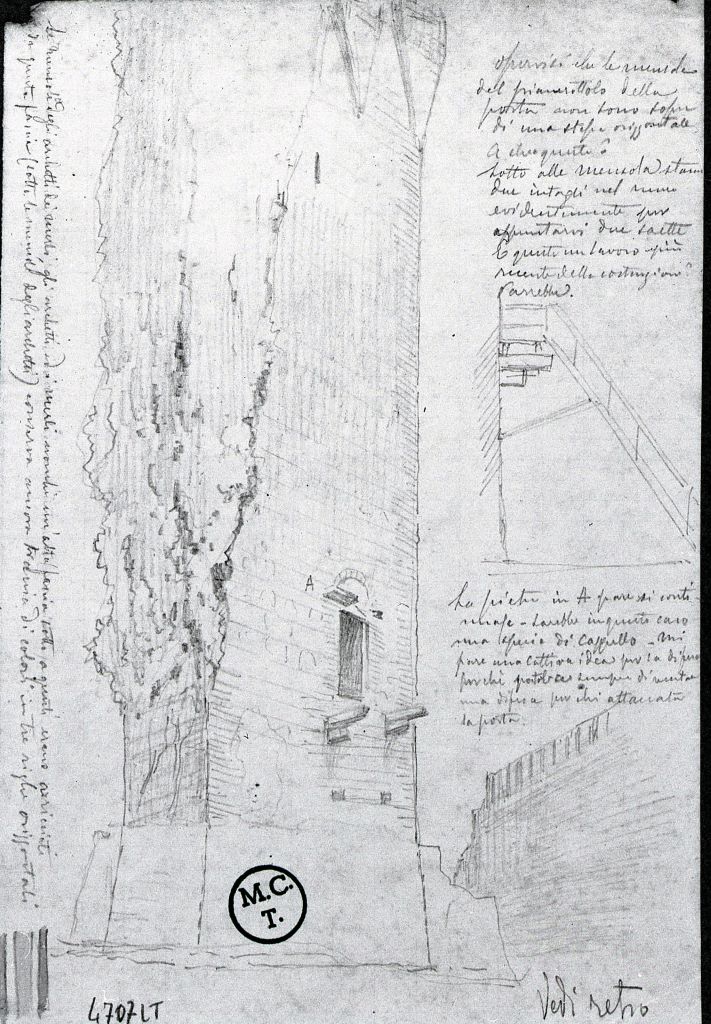 Osservisi che le mensole
del pianerottolo della
porta non sono sopra
di una stessa orizzontale
A che questo?
Sotto alle mensola stanno
due intagli nel muro
evidentemente per
appuntarvi due saette
È questo un lavoro più
recente della costruzione?
Parrebbe.
A
La pietra in A pare si conti
nuasse - Sarebbe in questo caso
una specie di Cappello - Mi
pare una cattiva idea per la difesa
perché poteva sempre diventare
una difesa per chi attaccata
la porta.
Le mensole degli archetti dei merli, gli archetti, ed i merli
da questa fascia (sotto le mensole degli archetti) conserva ancora traccia di colori in tre righe orizzontali
M.C.
T.
4707LT
Vedi retro